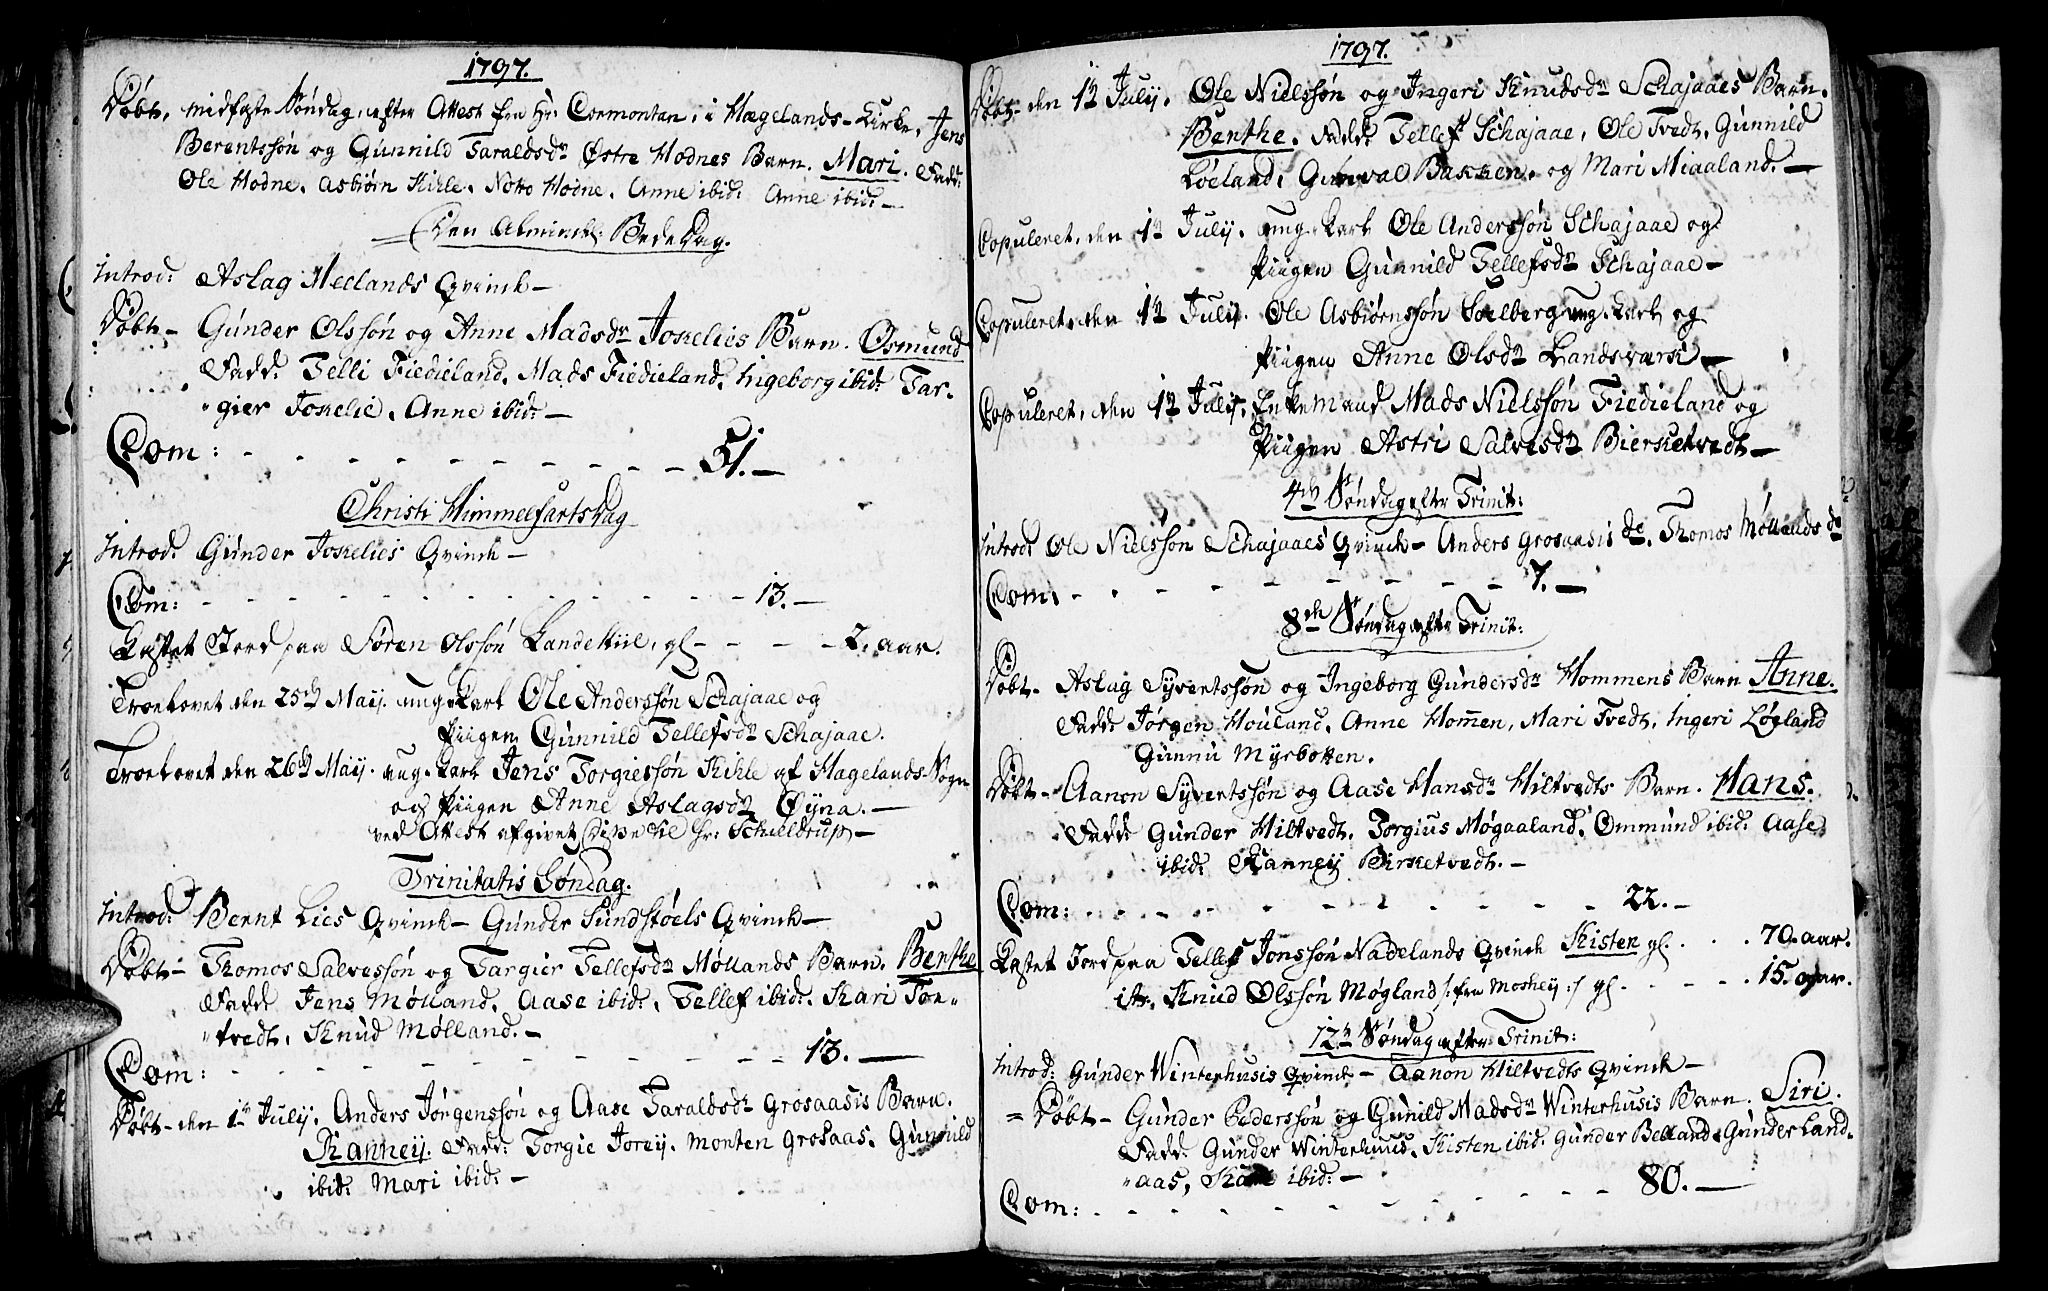 1797.
Døbt, midfaste Søndag, efter Attest fra Hr: Tormontan, i Hægelands-Kirke, Jens
Berentssøn og Gunnild Taraldsdr Østre Hodnes Barn. Mari. Fadd:
Ole Hodne, Asbiørn Kihle, Notto Hodne, Anne ibid: Anne ibid:—
Den Almindel: Bededag.
Introd: Aslag Meelands Qvinde—
Døbt— Gunder Olssøn og Anne Madsdr Joskelies Barn. Osmund
Fadd: Telli Fiedieland, Mads Fiedieland, Ingeborg ibid: Tar-
"gier Joskelie, Anne ibid:—
Com: - - - - - - - - - - 51.—
Christi Himmelfartsdag
Introd: Gunder Joskelies Qvinde—
Com: - - - - - - - - - - - - 13.—
Kastet Jord paa Søren Olssøn Landekiil, gl - - - - 2. aar.
Troelovet den 25de Maij. ung. Karl Ole Anderssøn Schajaae og
Piigen Gunnild Tellefsdr Schajaae.
Troelovet den 26de Maij. ung. Karl Jens Torgiessøn Kihle af Hægelands-Sogn
og Piigen Anne Aslagsdr Øyna.—
ved Attest afgivet til Hr: Schieldrup—
Trinitatis Søndag.
Introd: Bernt Lies Qvinde— Gunder Sundstøels Qvinde—
Døbt— Thomos Salvessøn og Targier Tellefsdr Møllands Barn. Benthe
Fadd Jens Mølland, Aase ibid:, Tellef ibid: Kari Tor-
"tvedt, Knud Mølland.—
Com: - - - - - - - - - - 13.—
Døbt— den 1te July, Anders Jørgenssøn og Aase Taraldsdr Grosaasis Barn.
Ranney. Fadd: Torgie Jorey, Monten Grosaas, Gunnild
ibid: Mari ibid:—
1797.
Døbt— den 12 July. Ole Nielssøn og Ingeri Knudsdr Schajaaes Barn.
Benthe. Fadd: Tellef Schajaae, Ole Tvedt, Gunnild
Løeland, Gunval Bakken, og Mari Miaaland.—
Copuleret, den 12 July. ung. Karl Ole Anderssøn Schajaae og
Piigen Gunnild Tellefsdr Schajaae—
Copuleret, den 12 July. Ole Asbiørnssøn Solberg ung. Karl og
Piigen Anne Olsdr Landsværk—
Copuleret, den 12 July, Enkemand Mads Nielssøn Fiedieland og
Piigen Astri Salvesdr Biersketvedt—
4de Søndag efter Trinit:
Introd: Ole Nielssøn Schajaaes Qvinde— Anders Grosaasis do. Thomos Møllands do
Com: - - - - - - - - - 7.—
8de Søndag efter Trinit:
Døbt— Aslag Syvertssøn og Ingeborg Gundersdr Hommens Barn Anne.
Fadd: Jørgen Houland, Anne Hommen, Mari Tvedt, Ingeri Løgland
Gunnu Myrbotten.
Døbt— Aanon Syvertssøn og Aase Hansdr Hiltvedts Barn. Hans.
Fadd: Gunder Hiltvedt, Torgius Møgaaland, Ommund ibid: Aase
ibid: Ranney Birketvedt.—
Com: - - - - - - - - - 22.—
Kastet Jord paa Tellef Jonssøn Nadelands Qvinde Kisten gl. . . . 70. aar.
it. Knud Olssøn Møgland /: fra Moskey :/ gl - - - - - 15. aar.
12te Søndag efter Trinit:
Introd: Gunder Winterhusis Qvinde— Aanon Hiltvedts Qvinde—
= Døbt— Gunder Pederssøn og Gunild Madsdr Winterhusis Barn. Siri.
Fadd: Gunder Winterhuus, Kisten ibid: Gunder Belland, Gunder Land-
"aas, ibid:—
Com: - - - - - - - - - 80.—